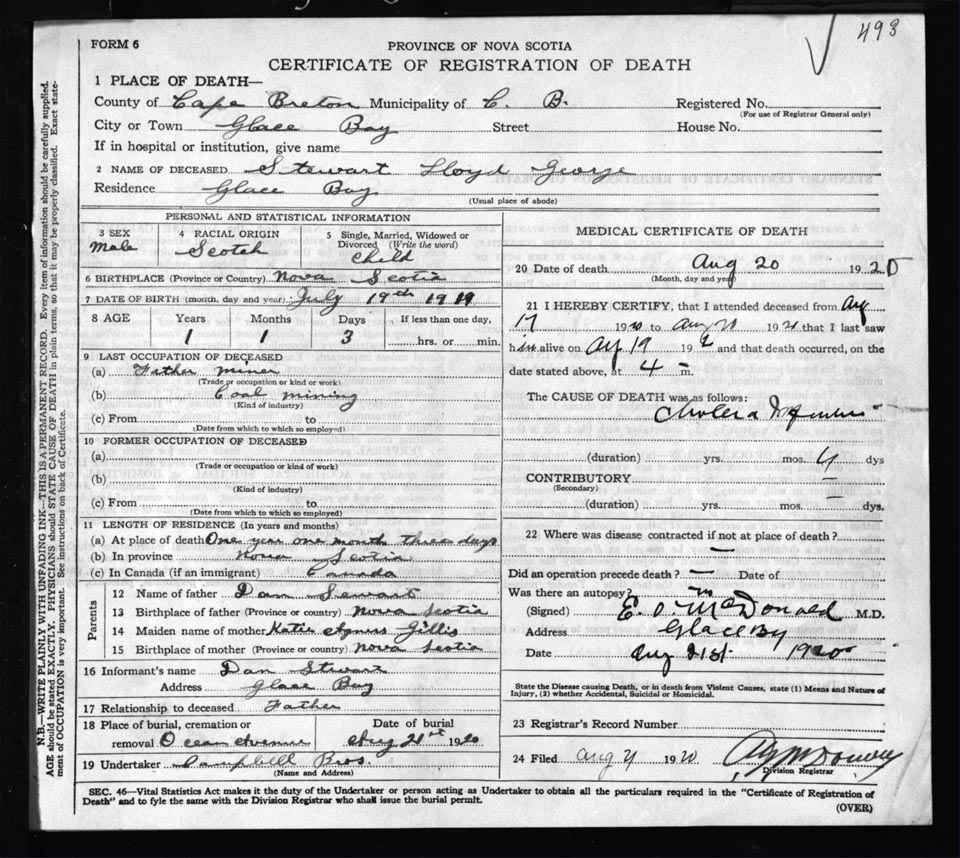 493
FORM 6
PROVINCE OF NOVA SCOTIA
CERTIFICATE OF REGISTRATION OF DEATH
1 PLACE OF DEATH—
County of Cape Breton Municipality of C. B. Registered No.
(For use of Registrar General only)
City or Town Glace Bay Street House No.
If in hospital or institution, give name
2 NAME OF DECEASED Stewart Lloyd George
Residence Glace Bay
(Usual place of abode)
PERSONAL AND STATISTICAL INFORMATION
3 SEX 4 RACIAL ORIGIN 5 Single, Married, Widowed or
Divorced (Write the word)
Male Scotch Child
6 BIRTHPLACE (Province or Country) Nova Scotia
7 DATE OF BIRTH (month, day and year) July 19th 1919
8 AGE Years Months Days If less than one day,
1 1 3 hrs. or min.
9 LAST OCCUPATION OF DECEASED
(a) Father miner
(Trade or occupation or kind of work)
(b) Coal mining
(Kind of industry)
(c) From to
(Date from which to which so employed)
10 FORMER OCCUPATION OF DECEASED
(a)
(Trade or occupation or kind of work)
(b)
(Kind of industry)
(c) From to
(Date from which to which so employed)
11 LENGTH OF RESIDENCE (In years and months)
(a) At place of death One year one month three days
(b) In province Nova Scotia
(c) In Canada (if an immigrant) Canada
Parents
12 Name of father Dan Sewart
13 Birthplace of father (Province or country) Nova Scotia
14 Maiden name of mother Katie Agnes Gillis
15 Birthplace of mother (Province or country) Nova Scotia
16 Informant's name Dan Stewart
Address Glace Bay
17 Relationship to deceased Father
18 Place of burial, cremation or Date of burial
removal Ocean Avenue Aug 21st 1920
19 Undertaker Campbell Bros.
(Name and Address)
MEDICAL CERTIFICATE OF DEATH
20 Date of death Aug 20 1920
(Month, day and year)
21 I HEREBY CERTIFY, that I attended deceased from Aug
17 1920 to Aug 20 1920 that I last saw
him alive on Aug 19 192 and that death occurred, on the
date stated above, at 4 m.
The CAUSE OF DEATH was as follows:
Cholera Infantum
(duration) yrs. mos. 4 dys
CONTRIBUTORY
(Secondary)
(duration) yrs. mos. dys.
22 Where was disease contracted if not at place of death?
Did an operation precede death? — Date of
Was there an autopsy?
(Signed) E. O. McDonald M.D.
Address Glace Bay
Date Aug 21st 1920
State the Disease causing Death, or in death from Violent Causes, state (1) Means and Nature of
Injury, (2) whether Accidental, Suicidal or Homicidal.
23 Registrar's Record Number
24 Filed Aug 21 1920
Division Registrar
SEC. 46—Vital Statistics Act makes it the duty of the Undertaker or person acting as Undertaker to obtain all the particulars required in the "Certificate of Registration of
Death" and to fyle the same with the Division Registrar who shall issue the burial permit.
(OVER)
N.B.—WRITE PLAINLY WITH UNFADING INK—THIS IS A PERMANENT RECORD. Every item of information should be carefully supplied.
AGE should be stated EXACTLY. PHYSICIANS should STATE CAUSE OF DEATH in plain terms, so that it may be properly classified. Exact state-
ment of OCCUPATION is very important. See instructions on back of Certificate.